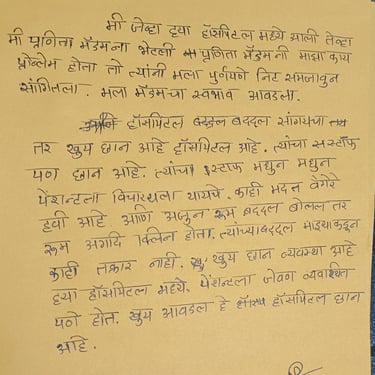 मी जेव्हा ह्या हॉसपिटल मध्ये आली तेव्हा
मी प्रणिता मॅडमना भेटली प्रणिता मॅडमनी माझा काय
प्रोब्लेम होता तो त्यांनी मला पुर्णपणे निट समजावुन
सांगितला. मला मॅडमचा स्वभाव आवडला.
हॉसपिटल बद्दल सांगयचा
तर खुप छान आहे हॉसपिटल आहे. त्यांचा स्टाफ
पण छान आहे. त्यांचा स्टाफ मधुन मधुन
पेंशन्टला विचारायला यायचे. काही मदत वगैरे
हवी आहे आणि अजुन रूम बद्दल बोलल तर
रूम अगदि क्लिन होता. त्यांच्याबद्दल माझ्याकडुन
काही तक्रार नाही. खुप छान व्यवस्था आहे
ह्या हॉसपिटल मध्ये. पेंशन्टला जेवण व्यवस्थित
पणे होत. खुप आवडल हे हॉसपिटल छान
आहे.